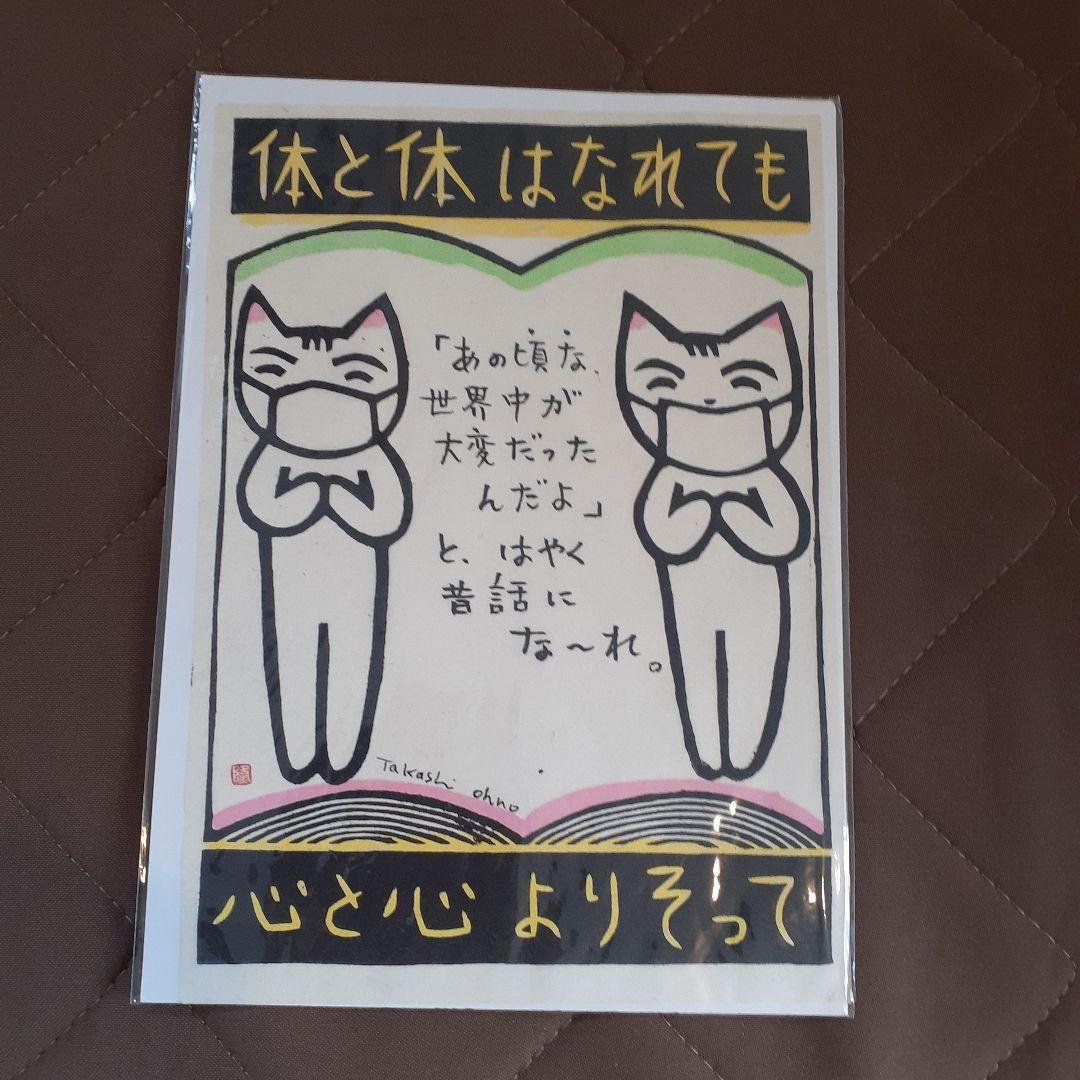 体と体はなれても
「あの頃な、
世界中が
大変だった
んだよ」
と、はやく
昔話に
な〜れ。
Takashi ohno
心と心よりそって